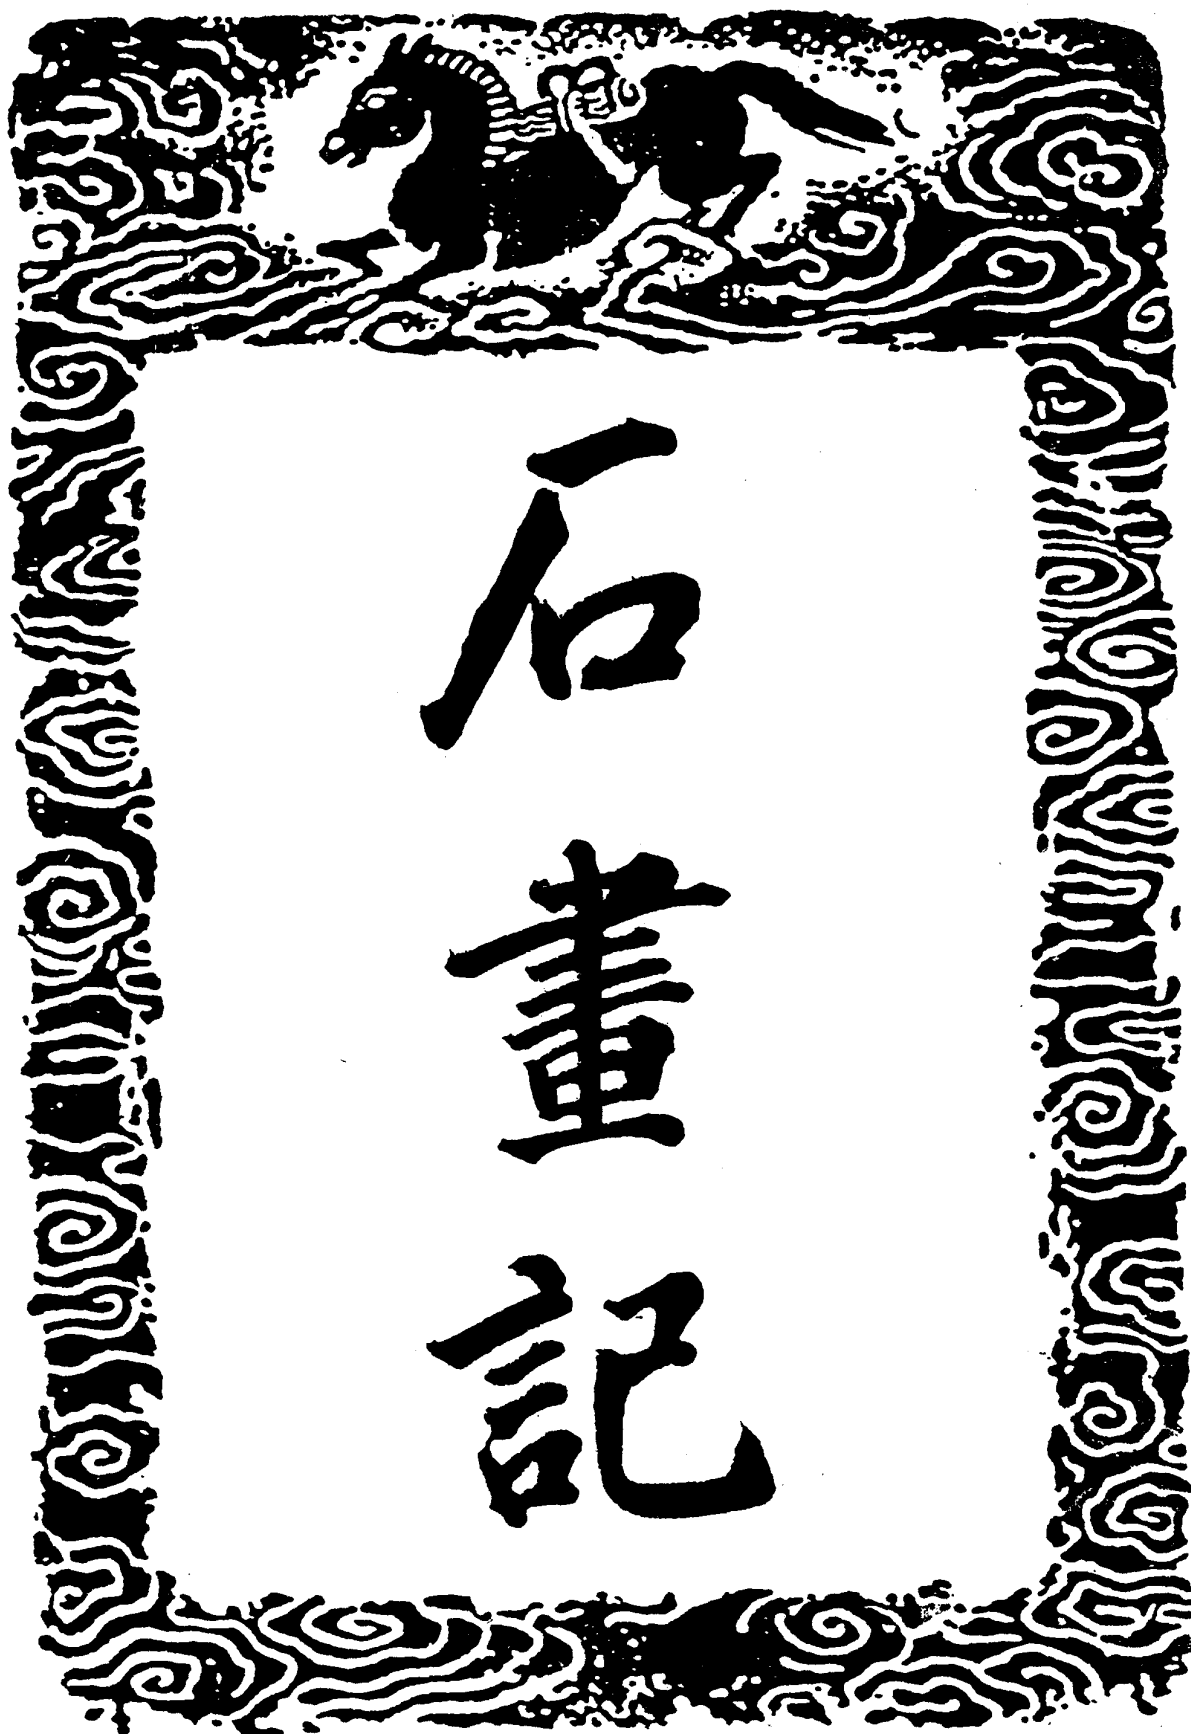 石畫記